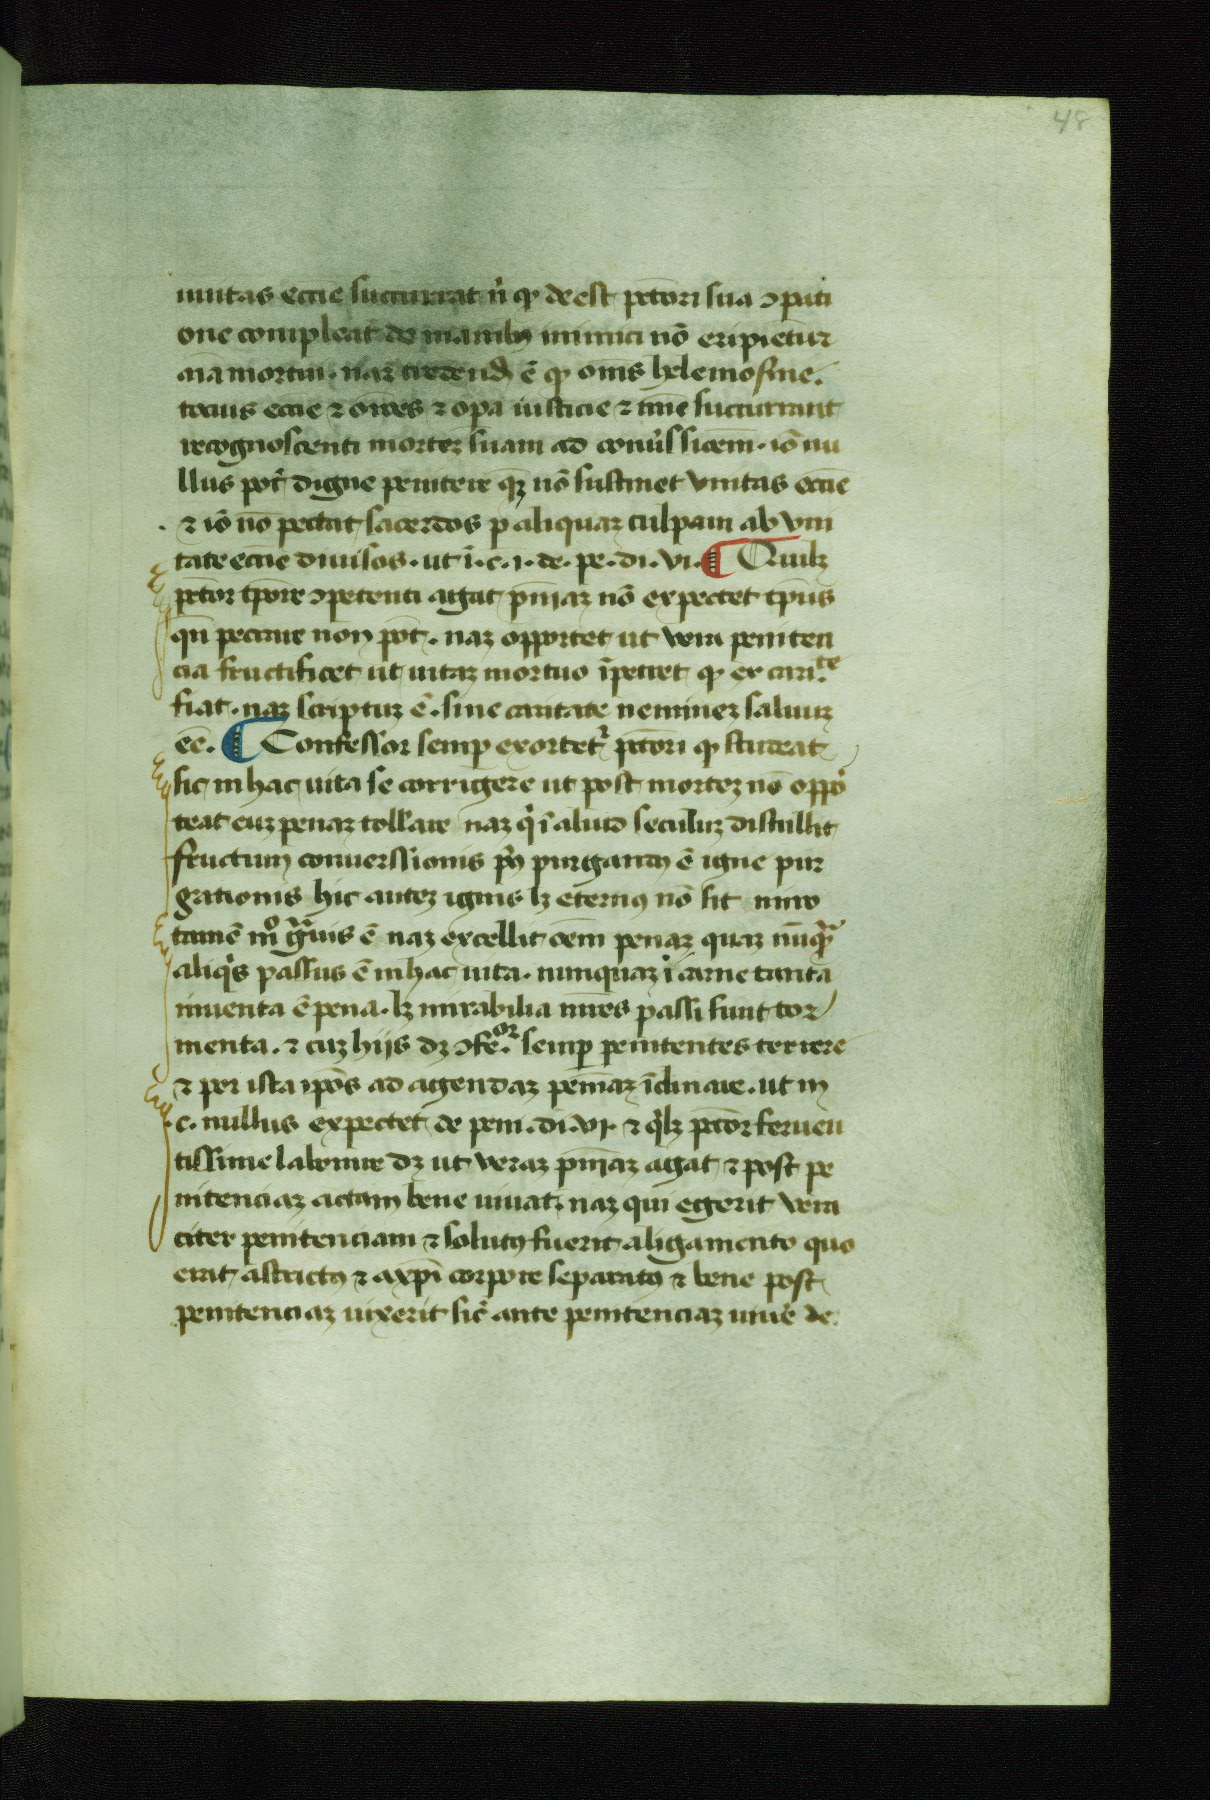 48
unitas eccīe succurrat nͥ qꝫ deest pctori sua ɔpati
one compleat de manibꝰ inimici nō eripietur
aīa mortui · naꝫ credendū ē qꝫ om̄s helemosine ·
tocius eccīe ⁊ orōes ⁊ opa iusticie ⁊ mīe succurrant
recognoscenti morteꝫ suam ad conuͥssiōem · iō nu
llus pōt digne penitere qꝫ nō sustinet vnitas eccīe
⁊ iō nō pectat sacerdos p aliquaꝫ culpam ab vni
tate eccīe diuisos · ut ī · c · i · de · pe · di · vi · ¶ Quilꝫ
pctor tpōre ɔpetenti agat pn̄iaꝫ nō expectet tp̄us
qn̄ peccare non pōt · naꝫ opportet ut vera peniten
cia fructificet ut uitaꝫ mortuo īpetret qꝫ ex cari·te
fiat · naꝫ scriptuꝫ ē · sine caritate nemineꝫ saluuꝫ
eē · ¶ Confessor semp exortetͬ pctori qꝫ studeat
sic in hac uita se corrigere ut post morteꝫ nō oppoͬ
teat euꝫ penaꝫ tollare naꝫ qͥ ī aliud seculuꝫ distullit
fructum conuerssionis pͥꝰ purgandꝰ ē igne pur
grationis hic auteꝫ ignis lꝫ eternꝰ nō sit miro
tamē mͦ gͣuis ē naꝫ excellit oēm penaꝫ quaꝫ nūqͣꝫ
aliqͥs passus ē in hac uita · nunquaꝫ ī carne tanta
inuenta ē pena · lꝫ mirabilia mr̄es passi sunt tor
menta · ⁊ cuꝫ hijs dꝫ ɔfe·or semp penitentes terrere
⁊ per ista ip̄os ad agendaꝫ peniaꝫ īclinare · ut in
· c · nullus expectet de peni · di · vi · ⁊ qͥlꝫ pctor feruen
tissime laborare dꝫ ut veraꝫ pn̄iaꝫ agat ⁊ post pe
nitenciaꝫ actam bene uiuat · naꝫ qui egerit vera
citer penitenciam ⁊ solutꝰ fuerit aligamento quo
erat astrictꝰ ⁊ axp̄i corpore separatꝰ ⁊ bene post
penitenciaꝫ uixerit sic̄ ante penitenciaꝫ uiuē de